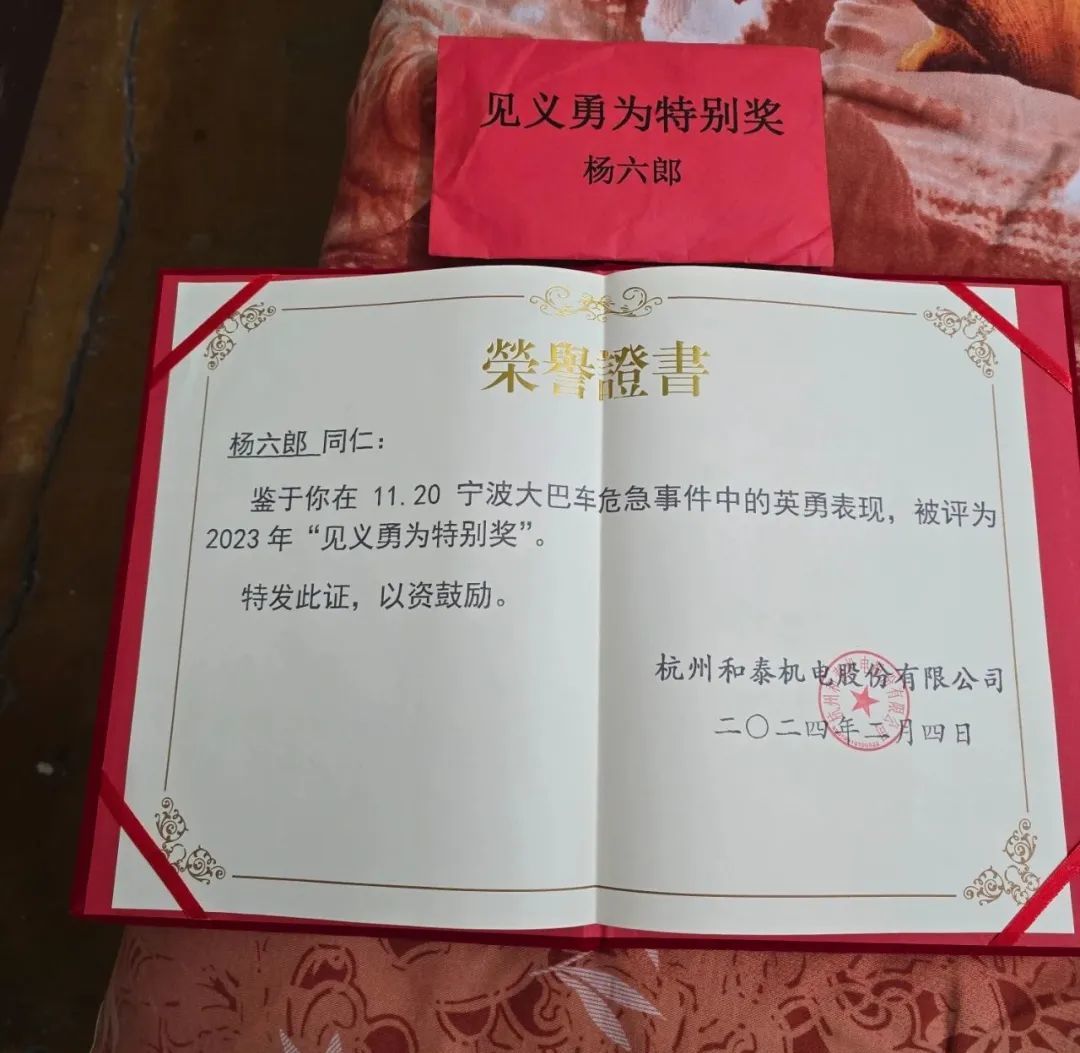 见义勇为特别奖
杨六郎
榮譽證書
杨六郎 同仁：
鉴于你在 11.20 宁波大巴车危急事件中的英勇表现，被评为
2023 年“见义勇为特别奖”。
特发此证，以资鼓励。
杭州和泰机电股份有限公司
二〇二四年二月四日